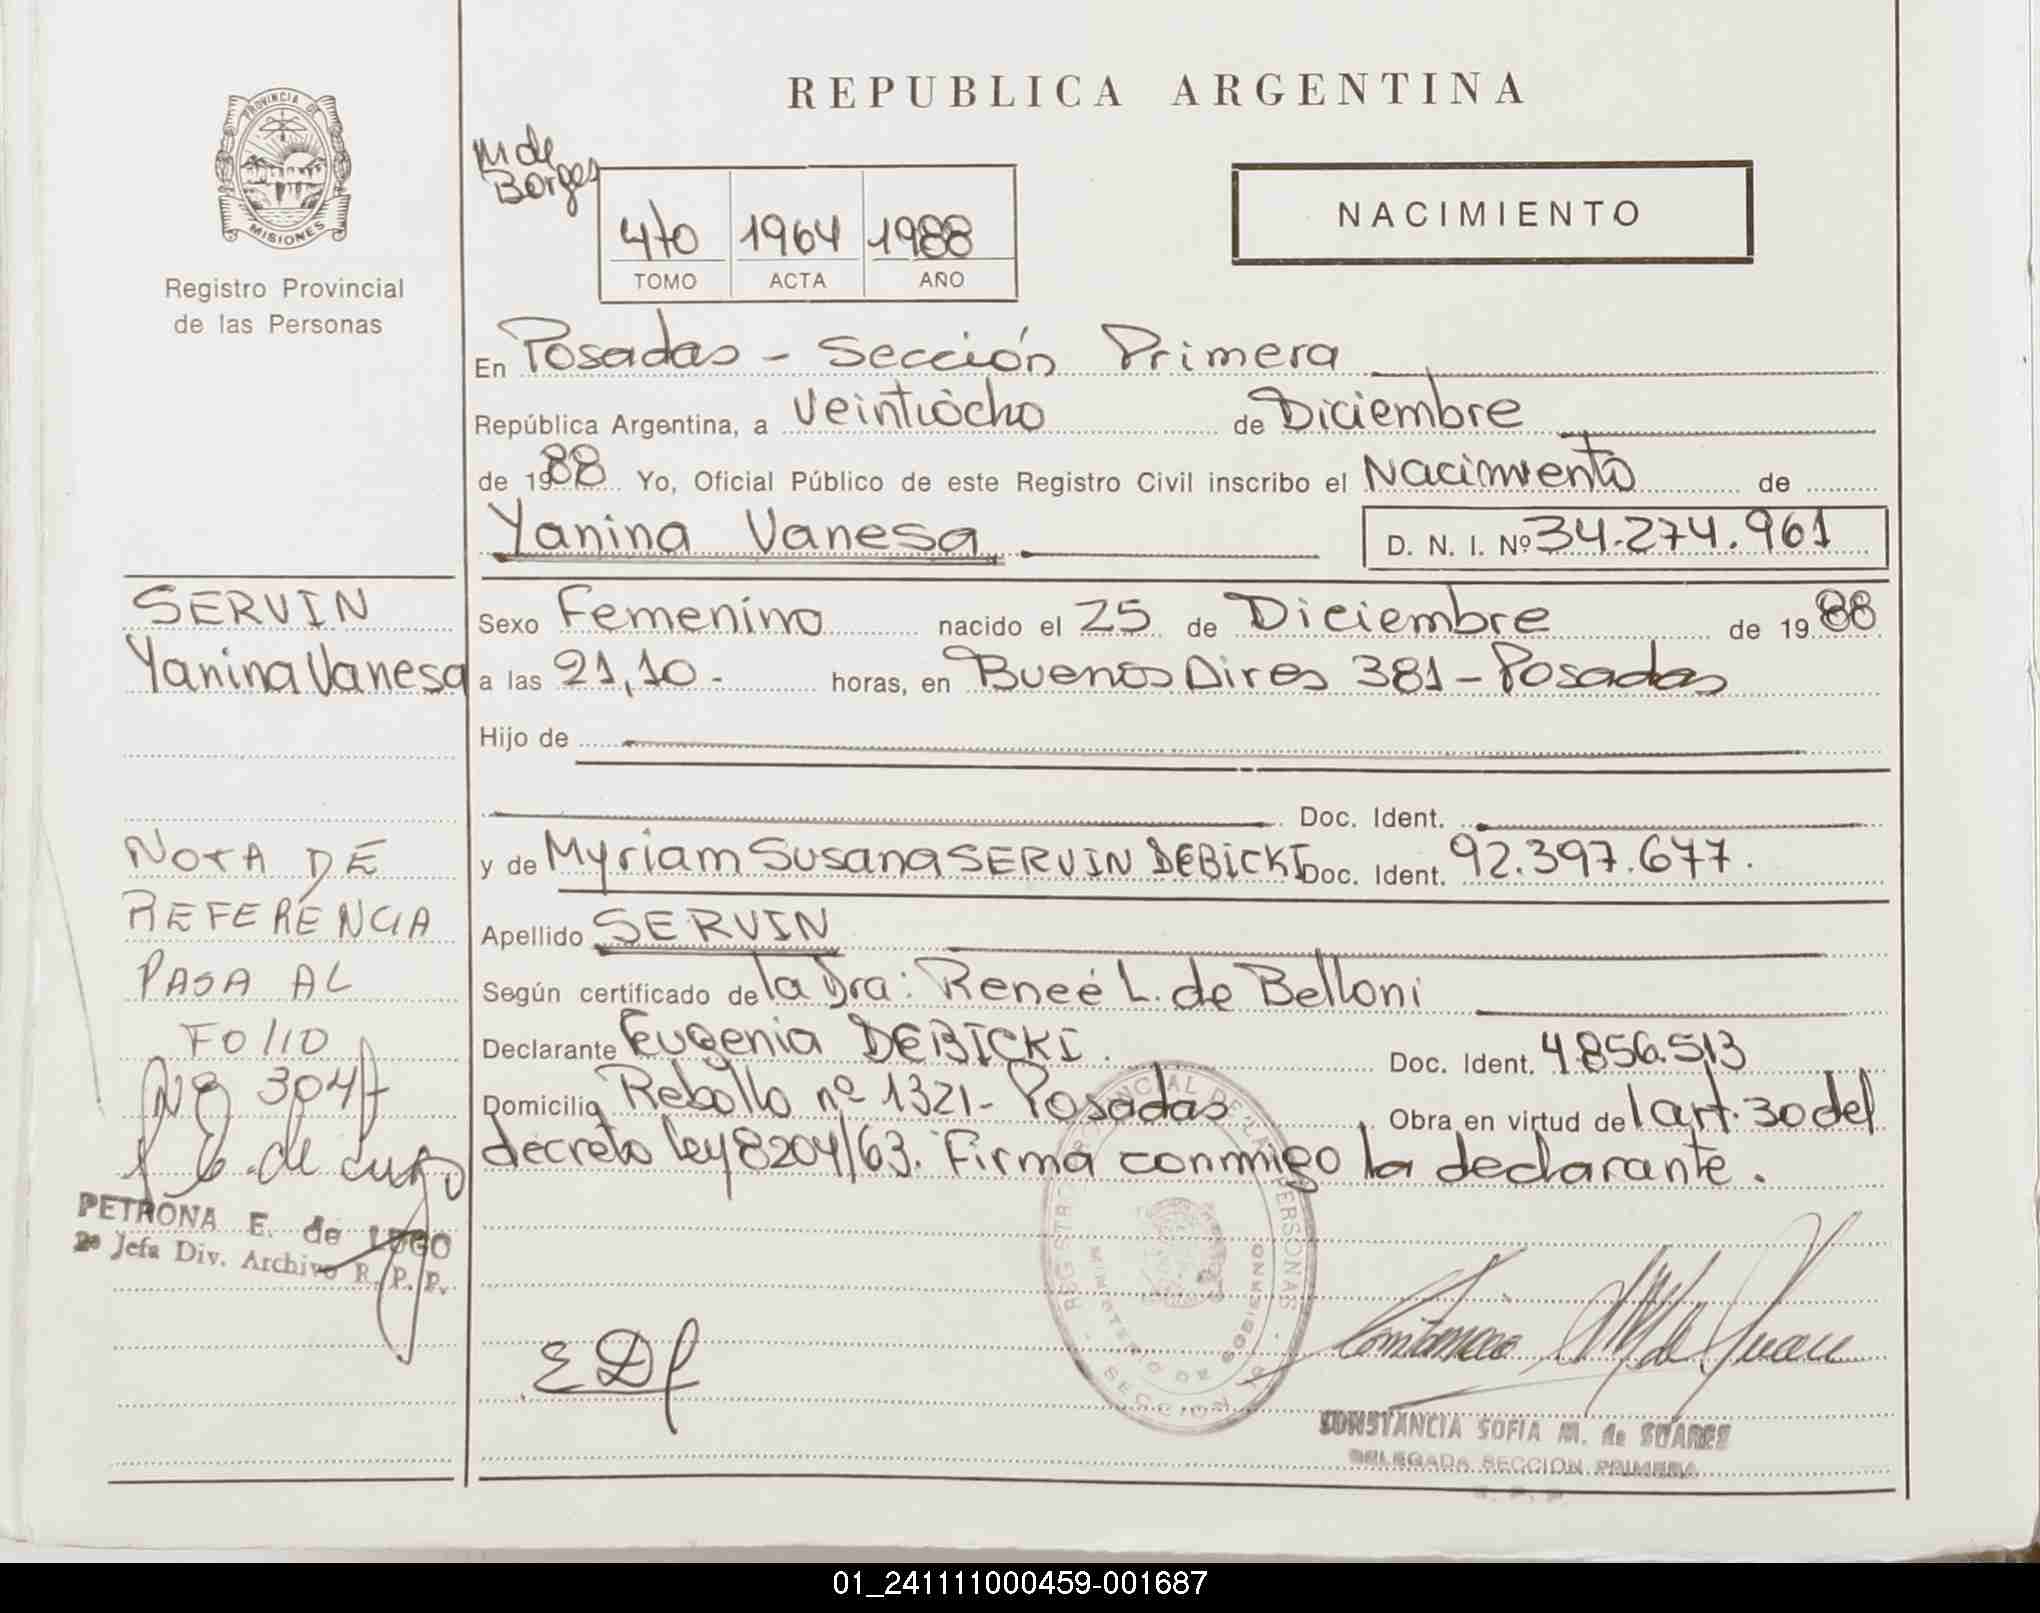 REPUBLICA ARGENTINA
PROVINCIA DE
MISIONES
Registro Provincial
de las Personas
M de
Borges
470 1964 1988
TOMO ACTA AÑO
NACIMIENTO
En Posadas - Sección Primera
República Argentina, a Veintiocho de Diciembre
de 1988 Yo, Oficial Público de este Registro Civil inscribo el Nacimiento de
Yanina Vanesa D. N. I. Nº 34.274.961
SERVIN
Yanina Vanesa
Sexo Femenino nacido el 25 de Diciembre de 1988
a las 21,10.- horas, en Buenos Aires 381 - Posadas
Hijo de
Doc. Ident.
y de Myriam Susana SERVIN DEBICKI Doc. Ident. 92.397.677.
Apellido SERVIN
Según certificado de la Dra: Reneé L. de Belloni
Declarante Eugenia DEBICKI. Doc. Ident. 4.856.513
Domicilio Rebollo nº 1321- Posadas Obra en virtud del art. 30 del
decreto ley 8204/63. Firma conmigo la declarante.
NOTA DE
REFERENCIA
PASA AL
FOLIO
Nº 3047
PETRONA E. de LUGO
2º Jefa Div. Archivo R. P. P.
REGISTRO PROVINCIAL DE LAS PERSONAS
MINISTERIO DE GOBIERNO
SECCION 1ª
EDf
CONSTANCIA SOFIA M. de SUARES
DELEGADA SECCION PRIMERA
R. P. P.
01_241111000459-001687